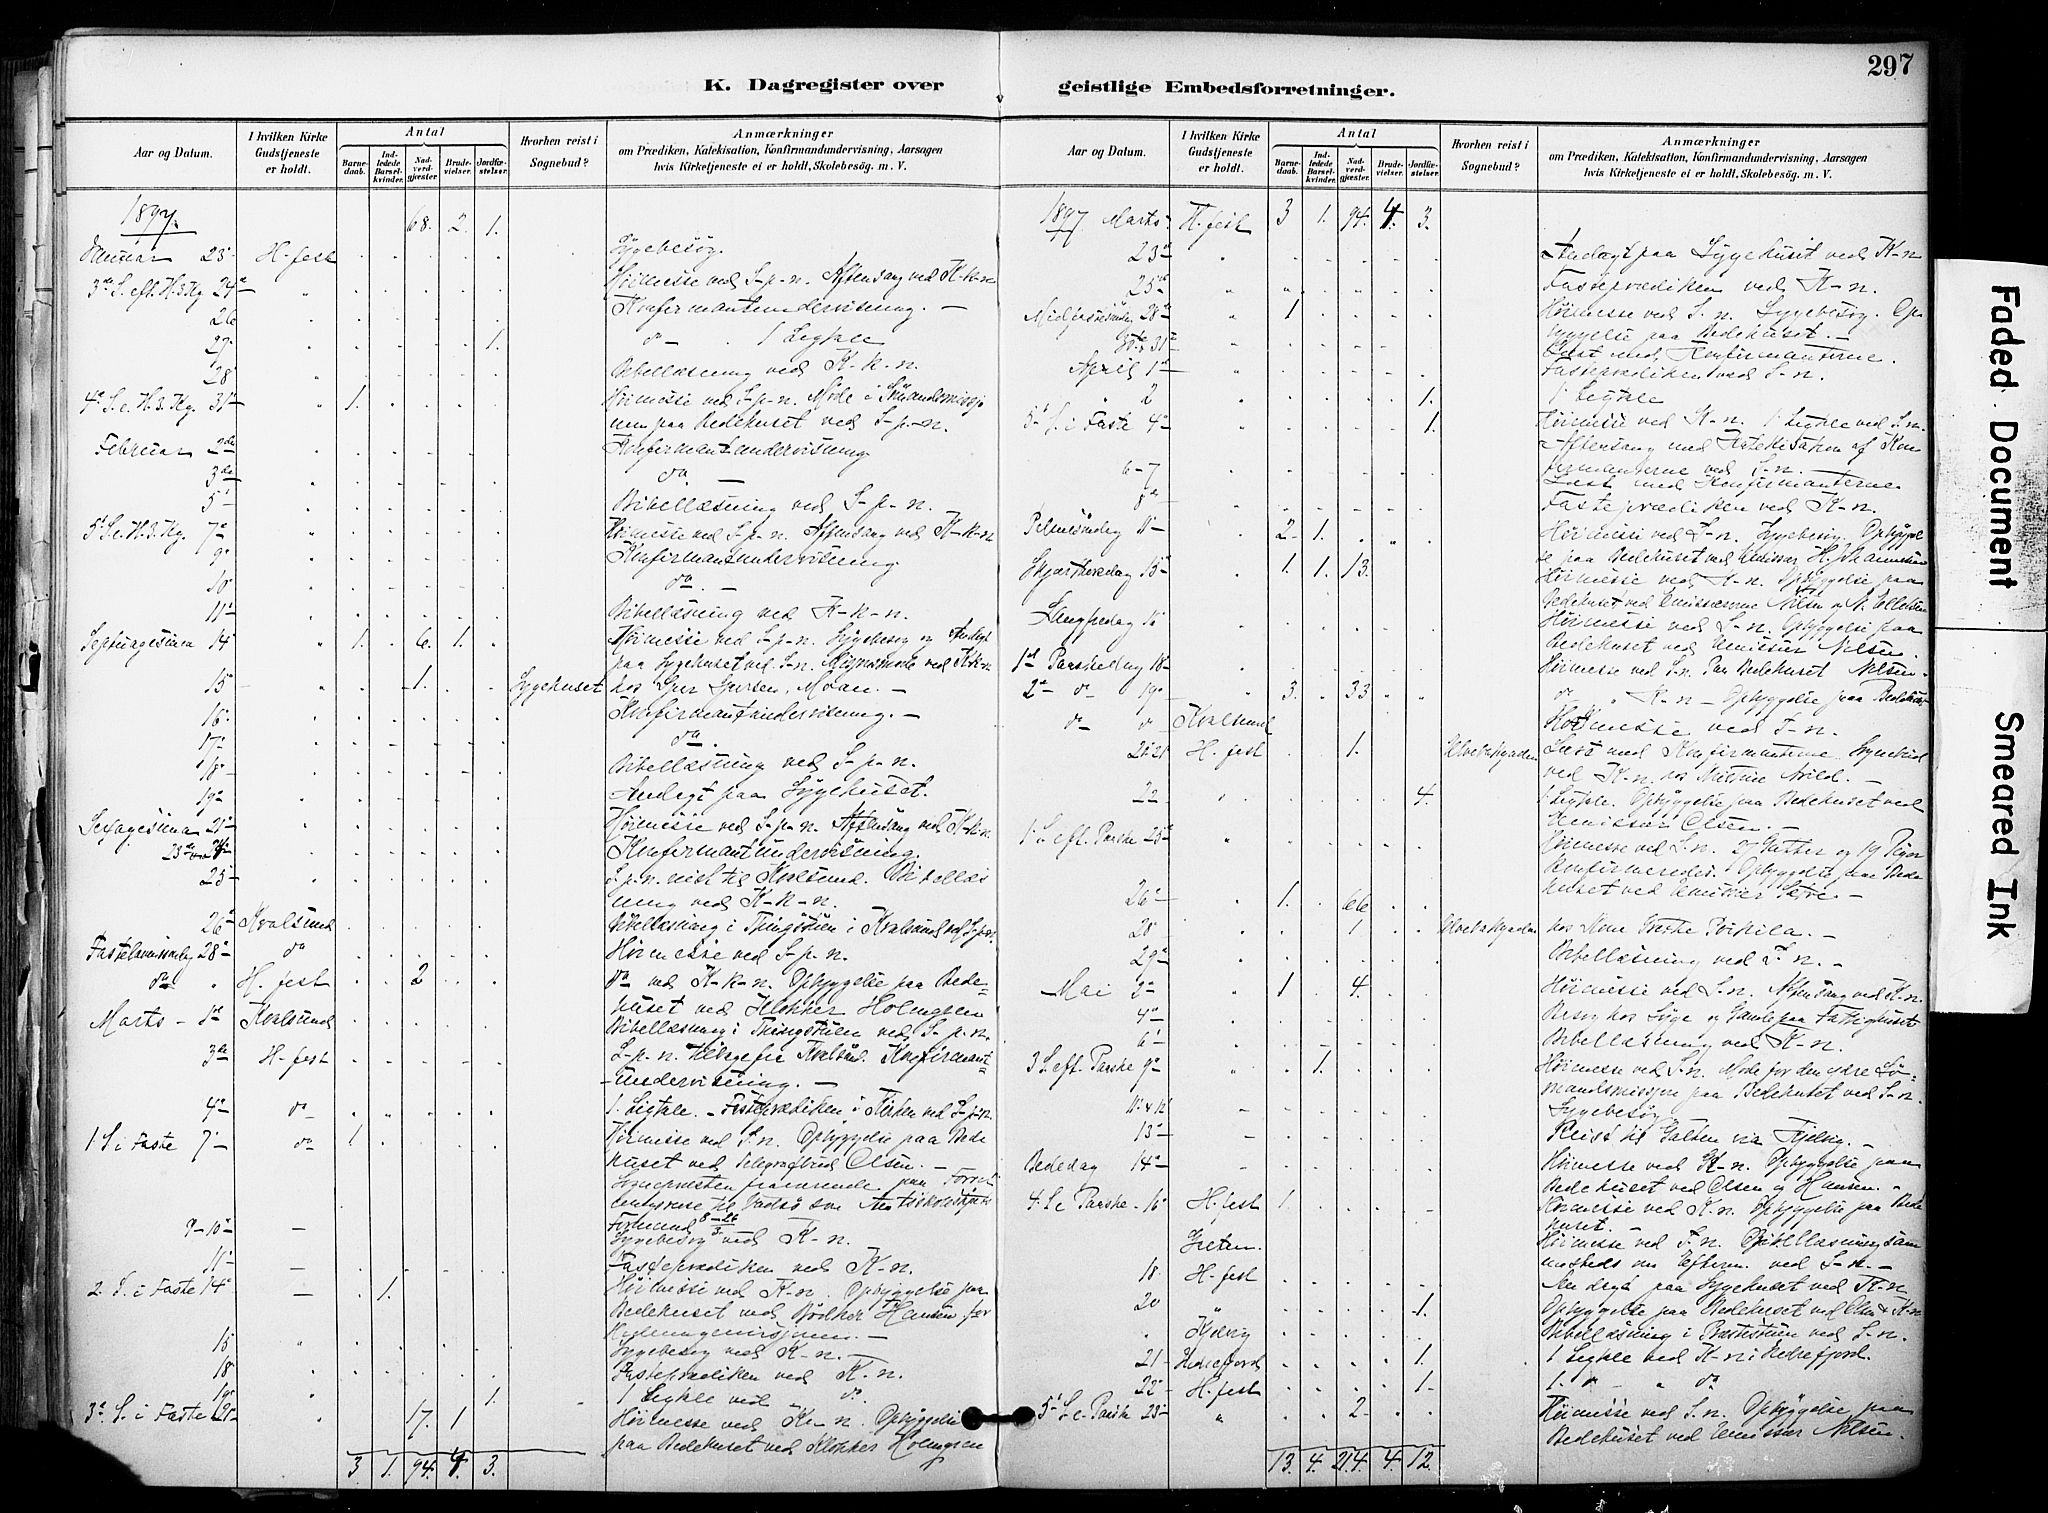 297
K. Dagregister over geistlige Embedsforretninger.
Aar og Datum.
I hvilken Kirke Gudstjeneste er holdt.
Antal
Barnedaab.
Indledede Barselkvinder.
Nadverdgjæster
Brudevielser.
Jordfæstelser.
Hvorhen reist i Sognebud?
Anmærkninger
om Prædiken, Katekisation, Konfirmandundervisning, Aarsagen
hvis Kirketjeneste ei er holdt, Skolebesög. m. V.
1897. 68. 2. 1.
Januar 23 H.fest Sygebesøg.
3die S. eft. H.3.Kg 24 Høimesse ved S-p-n. Aftensang ved K-k-n
26 Konfirmantundervisning. —
27 1. do — 1 Ligtale
28 Bibellæsning ved K-k-n.
4de S. e. H.3.Kg. 31 1. Høimesse ved S-p-n. Møde i
nen paa Bedehuset ved S-p-n.
Februar 2den Konfirmantundervisning
3die do —
5 Bibellæsning ved S-p-n.
5te S. e. H.3.Kg. 7 Høimesse ved S-p-n. Aftensang ved K-k-n
9 Konfirmantundervisning
10 do. —
11 Bibellæsning ved K-k-n.
Septuagesima 14 1. 6. 1. Høimesse ved S-p-n. Sygebesøg og Andagt
paa Sygehuset ved S-n. ved K-k-n
15 1. Sygehuset hos
16 Konfirmantundervisning. —
17 do.
18 Bibellæsning ved S-p-n.
19 Andagt paa Sygehuset.
Sexagesima 21 Høimesse ved S-p-n. Aftensang ved K-k-n.
23de 24 Konfirmantundervisning.
25 S-p-n. reist til Kvalsund. Bibellæs
ning ved K-k-n.
26 Kvalsund Bibellæsning i Thingstuen i Kvalsund ved S-p-n.
Fastelavnssøndag 28 do Høimesse ved S-p-n.
do H.fest 2 do ved K-k-n. Opbyggelse paa Bede-
huset ved Klokker Holmgren
Marts 1ste Kvalsund Bibellæsning i Thingstuen ved S-p-n.
3die H-fest S-p-n. tilbage fra Kvalsund. Konfirmant-
undervisning. —
4de do 1. Ligtale. — Fasteprædiken i Kirken ved S-p-n.
1 S i Faste 7 do 1 Høimesse ved S.n. Opbyggelse paa Bede
huset ved Telegrafbud Olsen. —
Sognepræsten fraværende paa
til Vadsø som
Formand 8-26/3
9-10 — Sygebesøg ved K-n.
11 — Fasteprædiken ved K-n.
2 S. i Faste 14 — 1. Høimesse ved K-n. Opbyggelse paa
Bedehuset ved Bødker Hansen for
Hedningemissjonen. —
15 Sygebesøg ved K-n. —
18 Fasteprædiken ved K-n.
19 1. 1 Ligtale ved do
3die S. i Faste 21 17. 1 Høimesse ved K-n. Opbyggelse
paa Bedehuset ved Klokker Holmgren
3 1. 94. 4. 3.
Aar og Datum.
I hvilken Kirke Gudstjeneste er holdt.
Antal
Barnedaab.
Indledede Barselkvinder.
Nadverdgjæster
Brudevielser.
Jordfæstelser.
Hvorhen reist i Sognebud?
Anmærkninger
om Prædiken, Katekisation, Konfirmandundervisning, Aarsagen
hvis Kirketjeneste ei er holdt, Skolebesög. m. V.
1897 Marts H.fest 3 1. 94. 4. 3.
23 Andagt paa Sygehuset ved K-n
25 Fasteprædiken ved K-n.
Midfastesøndag 28 1 Høimesse ved S.n. Sygebesøg. Op-
byggelse paa Bedehuset. —
31 Læst med Konfirmanterne.
April 1ste Fasteprædiken ved S-n.
2 1. 1 Ligtale
5te S. i Faste 4 1. Høimesse ved K-n. 1 Ligtale ved S.n.
Aftensang med Katekisation af Kon
firmanterne ved S-n. —
6-7 Læst med Konfirmanterne.
8 Fasteprædiken ved K-n.
Palmesøndag 11 2 1. Høimesse ved S-n. Sygebesøg. Opbyggel
se paa Bedehuset ved Emissær H. Johannesen
Skjærthorsdag 15 1. 1. 13. Høimesse ved K-n. Opbyggelse paa
Bedehuset ved Emissærerne Nilsen og N. Ellefsen
Langfredag Høimesse ved S-n. Opbyggelse paa
Bedehuset ved Emissær Nilsen.
1ste Paaskedag 18 Høimesse ved S.n. Paa Bedehuset Nilsen.
2den do 19 3. 33 do K-n — Opbyggelse paa Bedehuset
do do Kvalsund Høimesse ved S-n.
20-21 H-fest 1. Læst med Konfirmanterne
ved K-n. hos
22 4. 1 Ligtale. Opbyggelse paa Bedehuset ved
Emissær Olsen. —
1 S. eft. Paaske 25 Høimesse ved S.n. 27 Gutter og 19 Piger
konfirmeredes. Opbyggelse paa Bede
huset ved Emissær
26 1. 66
28 1 hos Mons Grethe
29 Bibellæsning ved S.n. —
Mai 2 1 4. Høimesse ved S.n. Aftensang ved K-n.
4 Besøg hos Syge og Gamle paa Fattighuset
6 Bibellæsning ved K-n.
3 S. eft. Paaske 9 1. Høimesse ved S.n. Møde for den
mandsmissjon paa Bedehuset ved S-n.
11 & 12 — Sygebesøg
13 — Reist til Galten via Kjelvig. —
Bededag 14 — Høimesse ved K-n. Opbyggelse paa
Bedehuset ved Olsen og Hansen.
4. S. e Paaske 16 H-fest 1. Høimesse ved K-n. Opbyggelse paa Bede
huset. —
Høimesse ved S.n. Bibellæsning sam
mesteds om Efterm. ved S-n. —
18 H-fest Andagt paa Sygehuset ved K-n
20 1. Opbyggelse paa Bedehuset ved Olsen & K-n
Kjelvig Bibellæsning i Præstestuen ved S-n.
21 1. 1 Ligtale ved K-n i
22 H-fest 1. 1. do
5te S. e. Paaske 23 2. Høimesse ved S.n. Opbyggelse paa
Bedehuset ved Emissær Nilsen.
13. 4. 214. 4. 12.
Faded Document
Smeared Ink